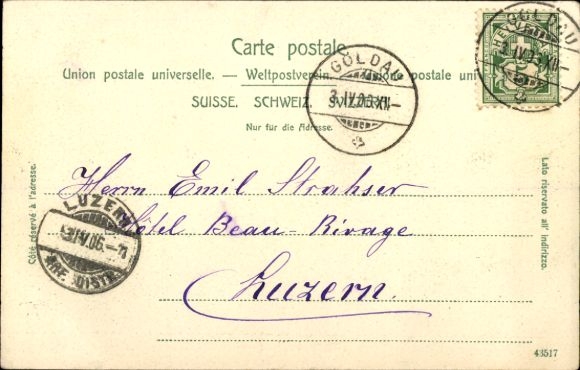 Carte postale.
Union postale universelle. — Weltpostverein. — Unione postale uni
SUISSE. SCHWEIZ. SVIZZERA.
Nur für die Adresse.
GOLDAU
3.IV.06.XII–
GOLDAU
HEL
LUZERN
3.IV.06.–
BRF. DISTR.
Côté réservé à l'adresse.
Lato riservato all' indirizzo.
Herrn Emil Strahser
Hôtel Beau-Rivage
Luzern.
43517